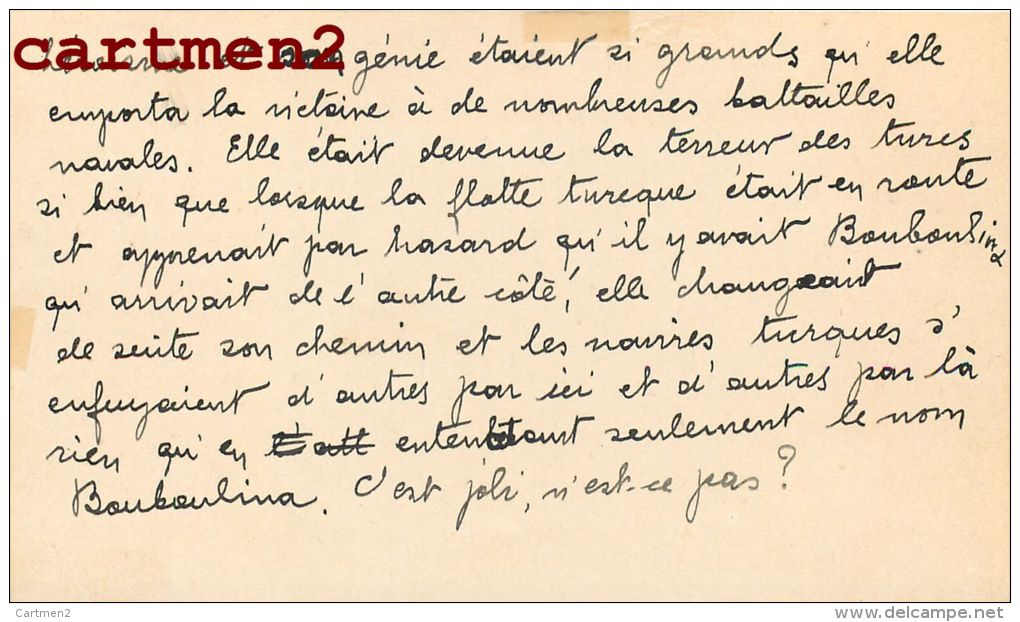 cartmen2
et son génie étaient si grands qu'elle
emporta la victoire à de nombreuses battailles
navales. Elle était devenue la terreur des turcs
si bien que lorsque la flotte turcque était en route
et apprenait par hasard qu'il y avait Bouboulina
qu'arrivait de l'autre côté, elle changeait
de suite son chemin et les navires turques s'
enfuyaient d'autres par ici et d'autres par là
rien qu'en entendant seulement le nom
Bouboulina. C'est joli, n'est-ce pas?
Cartmen2
www.delcampe.net